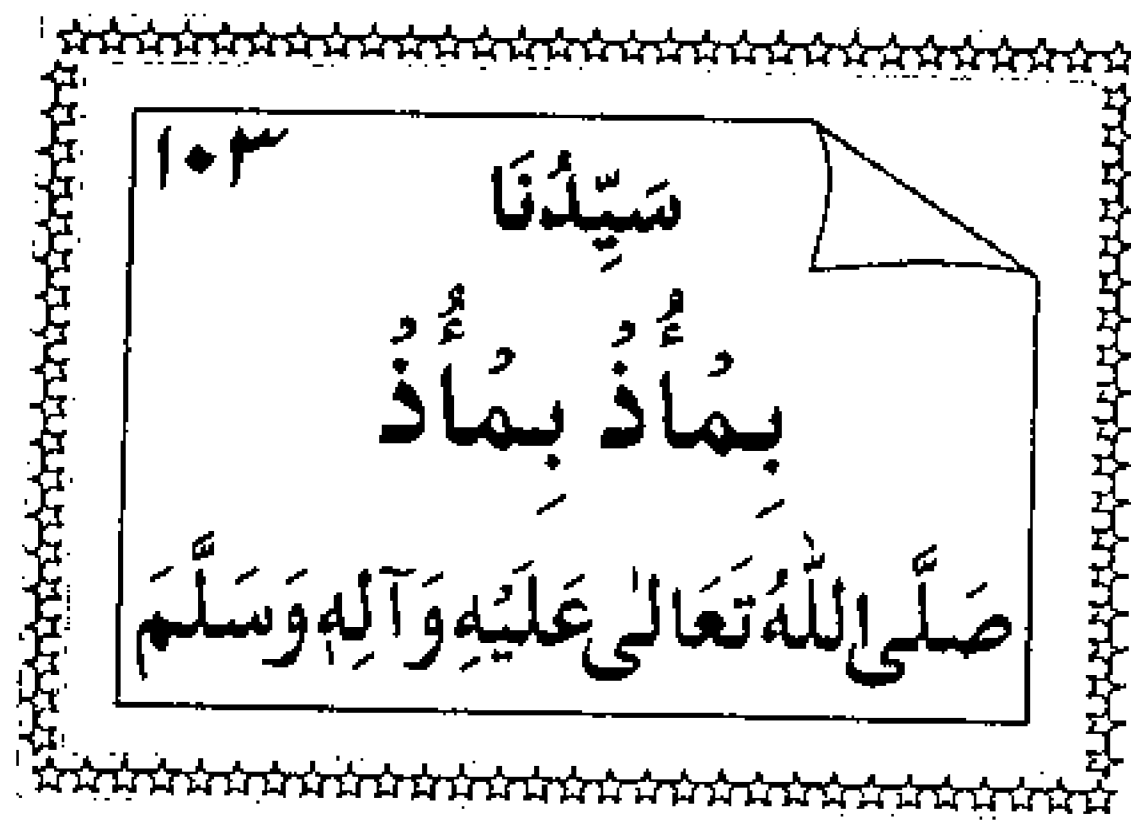 ۱۰۳
سَيِّدُنَا
بِمُأُذُ بِمُأُذُ
صَلَّى اللّٰهُ تَعَالىٰ عَلَيْهِ وَآلِهٖ وَسَلَّمَ